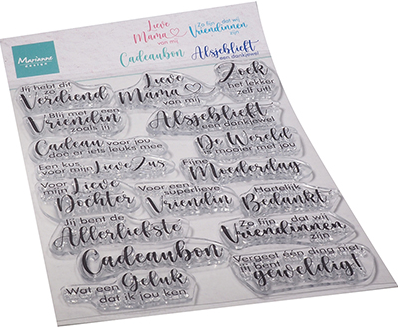 Marianne
DESIGN
Lieve
Mama
van mij
Zo fijn dat wij
Vriendinnen
zijn
Cadeaubon
Alsjeblieft
een dankewel
Jij hebt dit
zo
Verdiend
Lieve
Mama
van mij
Zoek
het lekker
zelf uit!
Blij met een
Vriendin
zoals jij
Alsjeblieft
een dankewel
Cadeau voor jou
doe er iets leuks mee
De Wereld
is mooier met jou
Een kus
voor mijn Lieve Zus
Fijne
Moederdag
Voor
mijn
Lieve
Dochter
Voor een
superlieve
Vriendin
Hartelijk
Bedankt
Jij bent de
Allerliefste
Zo fijn dat wij
Vriendinnen
zijn
Cadeaubon
Vergeet één ding niet
jij bent
geweldig!
Wat een Geluk
dat ik jou ken